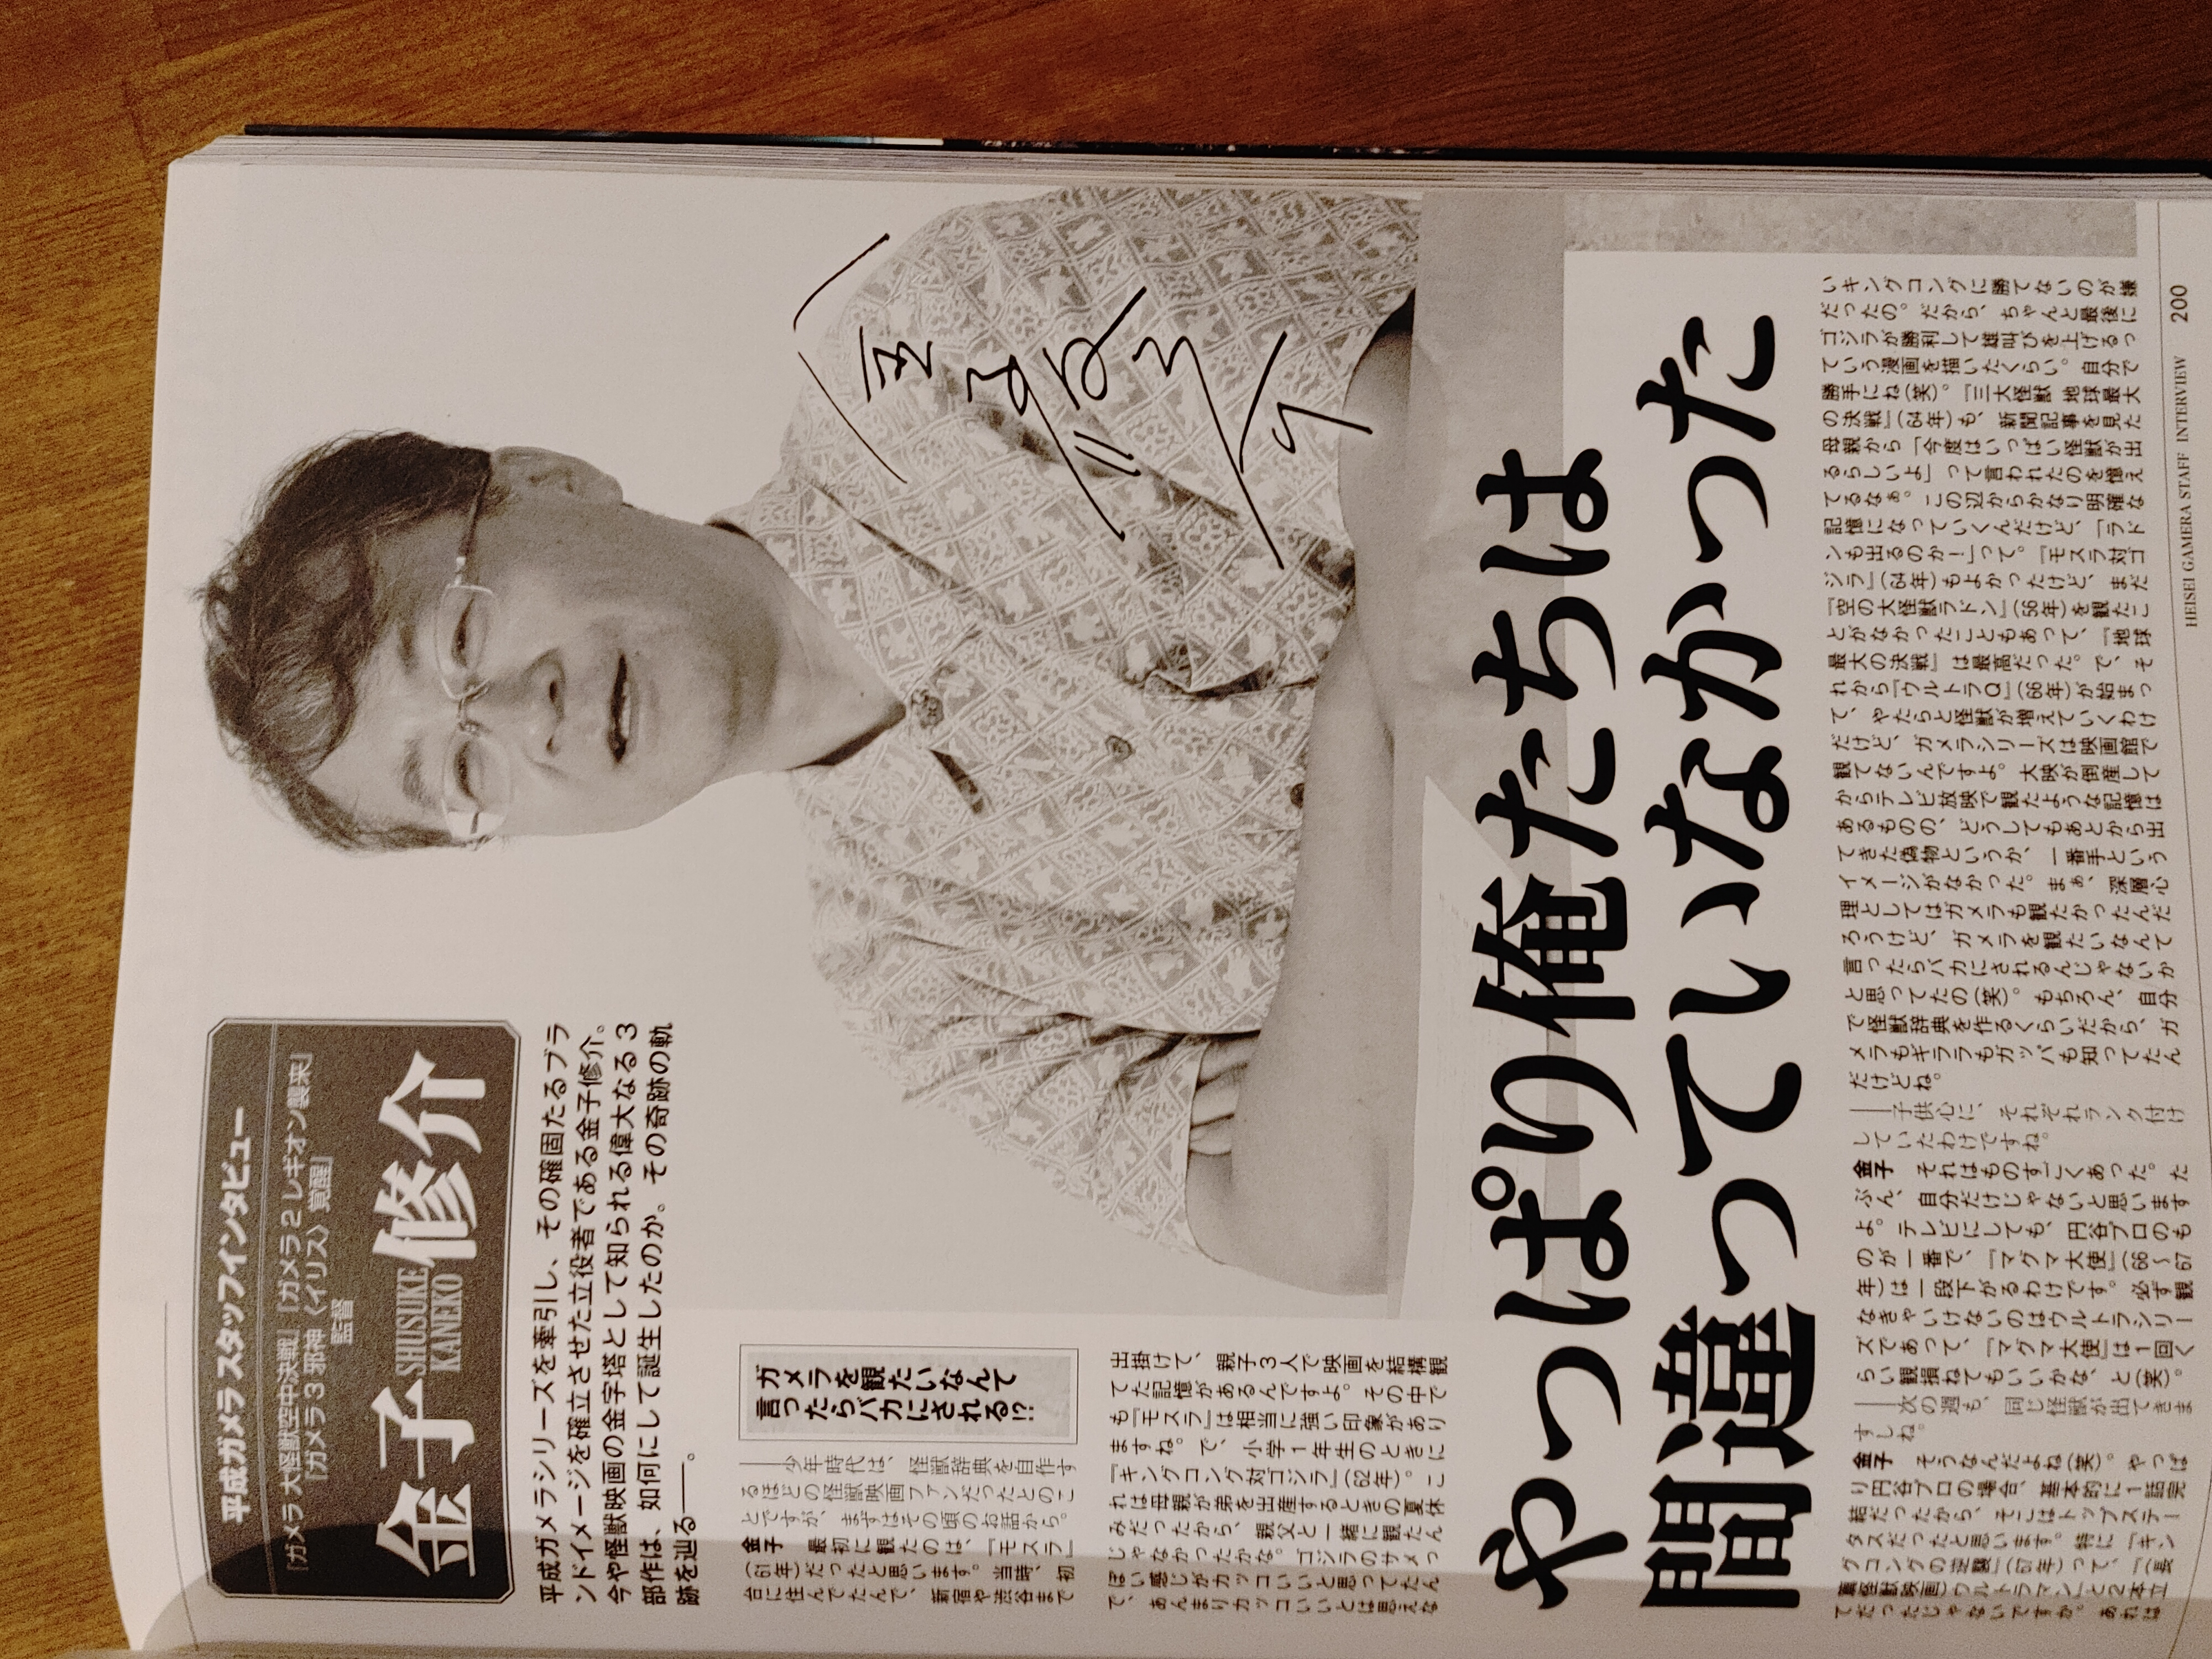 平成ガメラ スタッフインタビュー
『ガメラ 大怪獣空中決戦』『ガメラ2 レギオン襲来』
『ガメラ3 邪神〈イリス〉覚醒』
監督
金子修介
SHUSUKE
KANEKO
平成ガメラシリーズを牽引し、その確固たるブラ
ンドイメージを確立させた立役者である金子修介。
今や怪獣映画の金字塔として知られる偉大なる3
部作は、如何にして誕生したのか。その奇跡の軌
跡を辿る――。
金子修介
やっぱり俺たちは
間違っていなかった
ガメラを観たいなんて
言ったらバカにされる!?
――少年時代は、怪獣辞典を自作す
るほどの怪獣映画ファンだったとのこ
とですが、まずはその頃のお話から。
金子 最初に観たのは、『モスラ』
(61年)だったと思います。当時、初
台に住んでたんで、新宿や渋谷まで
出掛けて、親子3人で映画を結構観
てた記憶があるんですよ。その中で
も『モスラ』は相当に強い印象があり
ますね。で、小学1年生のときに
『キングコング対ゴジラ』(62年)。こ
れは母親が弟を出産するときの夏休
みだったから、親父と一緒に観たん
じゃなかったかな。ゴジラのサメっ
ぽい感じがカッコいいと思ってたん
で、あんまりカッコいいとは思えな
いキングコングに勝てないのが嫌
だったの。だから、ちゃんと最後に
ゴジラが勝利して雄叫びを上げるっ
ていう漫画を描いたくらい。自分で
勝手にね(笑)。『三大怪獣 地球最大
の決戦』(64年)も、新聞記事を見た
母親から「今度はいっぱい怪獣が出
るらしいよ」って言われたのを憶え
てるなぁ。この辺からかなり明確な
記憶になっていくんだけど、「ラド
ンも出るのか！」って。『モスラ対ゴ
ジラ』(64年)もよかったけど、まだ
『空の大怪獣ラドン』(56年)を観たこ
とがなかったこともあって、『地球
最大の決戦』は最高だった。で、そ
れから『ウルトラQ』(66年)が始まっ
て、やたらと怪獣が増えていくわけ
だけど、ガメラシリーズは映画館で
観てないんですよ。大映が倒産して
からテレビ放映で観たような記憶は
あるものの、どうしてもあとから出
てきた偽物というか、一番手という
イメージがなかった。まぁ、深層心
理としてはガメラも観たかったんだ
ろうけど、ガメラを観たいなんて
言ったらバカにされるんじゃないか
と思ってたの(笑)。もちろん、自分
で怪獣辞典を作るくらいだから、ガ
メラもギララもガッパも知ってたん
だけどね。
――子供心に、それぞれランク付け
していたわけですね。
金子 それはものすごくあった。た
ぶん、自分だけじゃないと思います
よ。テレビにしても、円谷プロのも
のが一番で、『マグマ大使』(66～67
年)は一段下がるわけです。必ず観
なきゃいけないのはウルトラシリー
ズであって、『マグマ大使』は1回く
らい観損ねてもいいかな、と(笑)。
――次の週も、同じ怪獣が出てきま
すしね。
金子 そうなんだよね(笑)。やっぱ
り円谷プロの場合、基本的に1話完
結だったから、そこはトップステー
タスだったと思います。特に『キン
グコングの逆襲』(67年)って、『(長
篇怪獣映画)ウルトラマン』と2本立
てだったじゃないですか。あれは
HEISEI GAMERA STAFF INTERVIEW 200